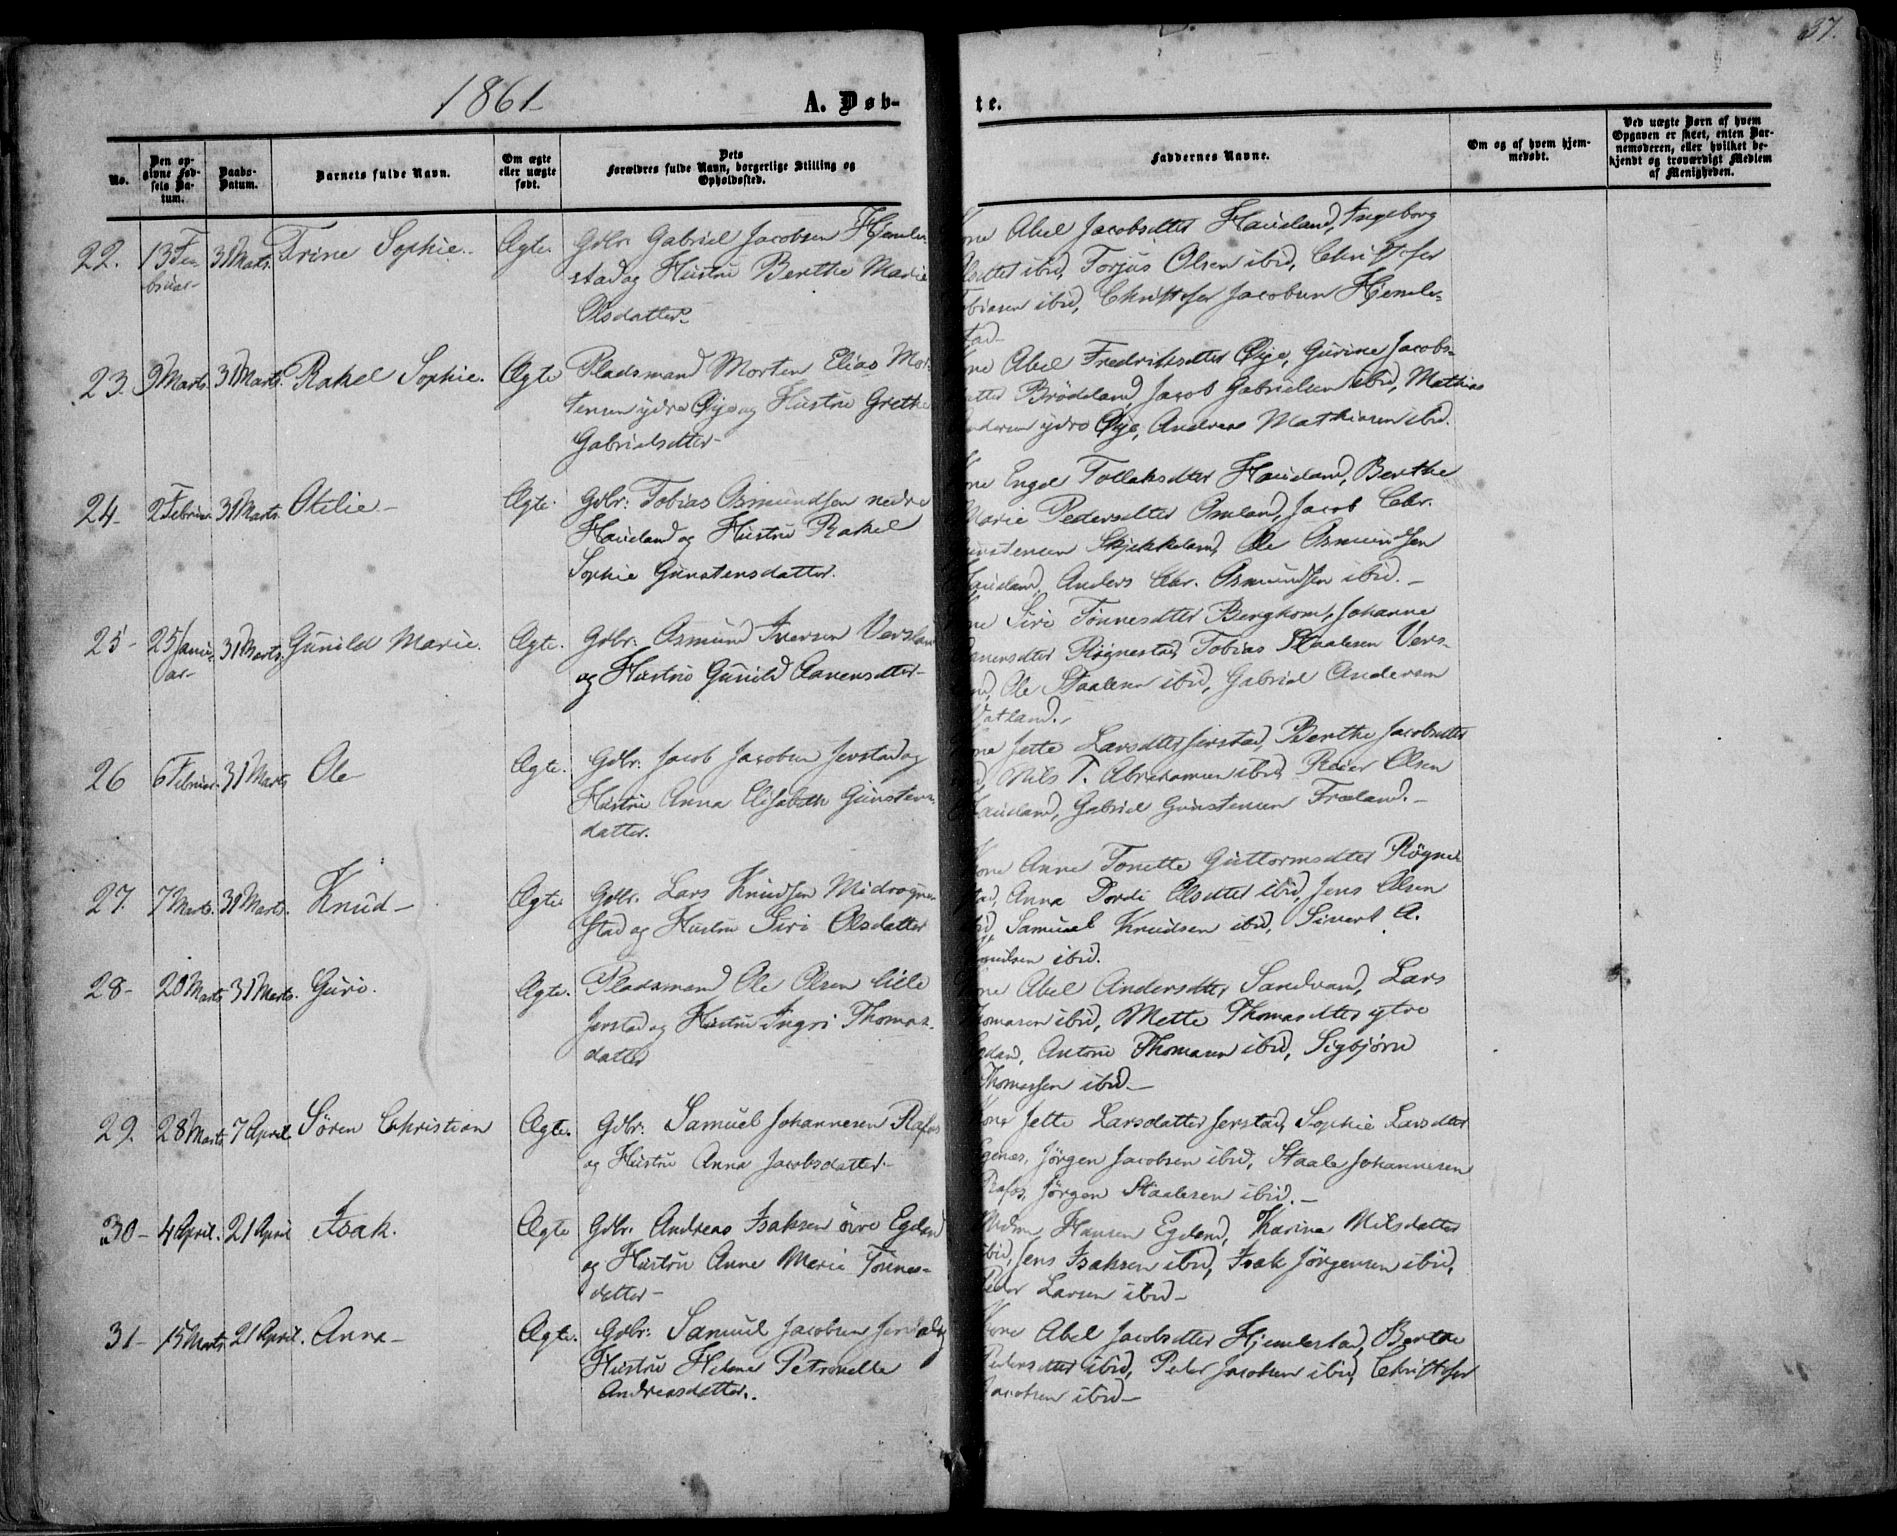 37.
1861
A. Døb-
te.
No.
Den op-
givne Fød-
sels Da-
tum.
Daabs-
Datum.
Barnets fulde Navn.
Om ægte
eller uægte
født.
Dets
Forældres fulde Navn, borgerlige Stilling og
Opholdssted.
Faddernes Navne.
Om og af hvem hjem-
medøbt.
Ved uægte Børn af hvem
Opgaven er skeet, enten Bar-
nemoderen, eller hvilket be-
kjendt og troværdigt Medlem
af Menigheden.
22. 13 Fe- 31 Marts. Trine Sophie. Ægte. Gdbr: Gabriel Jacobsen Hjemle-
bruar-
stad og Hustru Berthe Marie
Olsdatter-
Kone Abel Jacobsdtter Haueland, Ingeborg
ibid, Torjus Olsen ibid, Christofer
Tobiasen ibid, Christofer Jacobsen Hjemle-
stad-
23. 9 Marts. 31 Marts. Rakel Sophie. Ægte Pladsmand Morten Elias Mor-
tensen ydre Øye og Hustru Grethe
Gabrielsdtter-
Kone Abel Fredriksdtter Øye, Gurine Jacobs-
datter Brødeland, Jacob Gabrielsen ibid, Mathias
Andersen ydre Øye, Andreas Mathiasen ibid.
24- 2 Februar. 31 Marts Otilie- Ægte. Gdbr: Tobias Osmundsen nedre
Haueland og Hustru Rakel
Sophie Gunstensdatter.
Kone Engel Tollaksdtter Haueland, Berthe
Marie Pedersdtter Omland, Jacob Chr.
Gunstensen Skjekkeland, Ole Osmundsen
Haueland, Anders Chr. Osmundsen ibid.-
25- 25 Janu- 31 Marts. Gunild Marie. Ægte. Gdbr: Osmund Iversen Versland
ar-
og Hustru Gunild Aanensdtter-
Kone Siri Tønnesdtter Bergkom, Johanne
Aanensdtter Røgnestad, Tobias Staalesen Vers-
land, Ole Staalesen ibid, Gabriel Andersen
Vatland.-
26 6 Februar. 31 Marts Ole Ægte. Gdbr: Jacob Jacobsen Jerstad og
Hustru Anna Elisabeth Gunstens-
datter.
Kone Jette Larsdtter Jerstad, Berthe Jacobsdtter
Nils T. Abrahamsen ibid, Reier Olsen
Haueland, Gabriel Gunstensen Fræland.-
27. 7 Marts. 31 Marts. Knud- Ægte Gdbr. Lars Knudsen Midrøgne-
stad og Hustru Siri Olsdatter
Kone Anne Tonette Guttormsdtter Røgne-
stad, Anna Dordi Olsdtter ibid, Jens Olsen
ibid, Samuel Knudsen ibid, Sivert A.
Knudsen ibid.
28- 20 Marts 31 Marts. Guri. Ægte. Pladsmand Ole Olsen lille
Jerstad og Hustru Ingri Thomas-
datter
Kone Abel Andersdtter Sandvand, Lars
Thomasen ibid, Mette Thomasdtter ytre
Egeland, Antoni Thomasen ibid, Sigbjørn
Thomassen ibid-
29. 28 Marts. 7 April. Søren Christian Ægte. Gdbr: Samuel Johannesen Rafos
og Hustru Anna Jacobsdatter-
Kone Jette Larsdatter Jerstad, Sophie Larsdtter
Egenes, Jørgen Jacobsen ibid, Staale Johannesen
Rafos, Jørgen Staalesen ibid.-
30- 4 April. 21 April Isak. Ægte Gdbr. Andreas Isaksen øvre Egeland
og Hustru Anne Marie Tønnes-
datter-
Hansen Egeland, Karine Nilsdatter
ibid, Jens Isaksen ibid, Isak Jørgensen ibid,
Peder Larsen ibid-
31- 15 Marts 21 April. Anna- Ægte. Gdbr: Samuel Jacobsen Jerstad og
Hustru Helene Petronelle
Andreasdatter.
Kone Abel Jacobsdtter Hjemlestad, Berthe
Pedersdtter ibid, Peder Jacobsen ibid, Christofer
Jacobsen ibid-